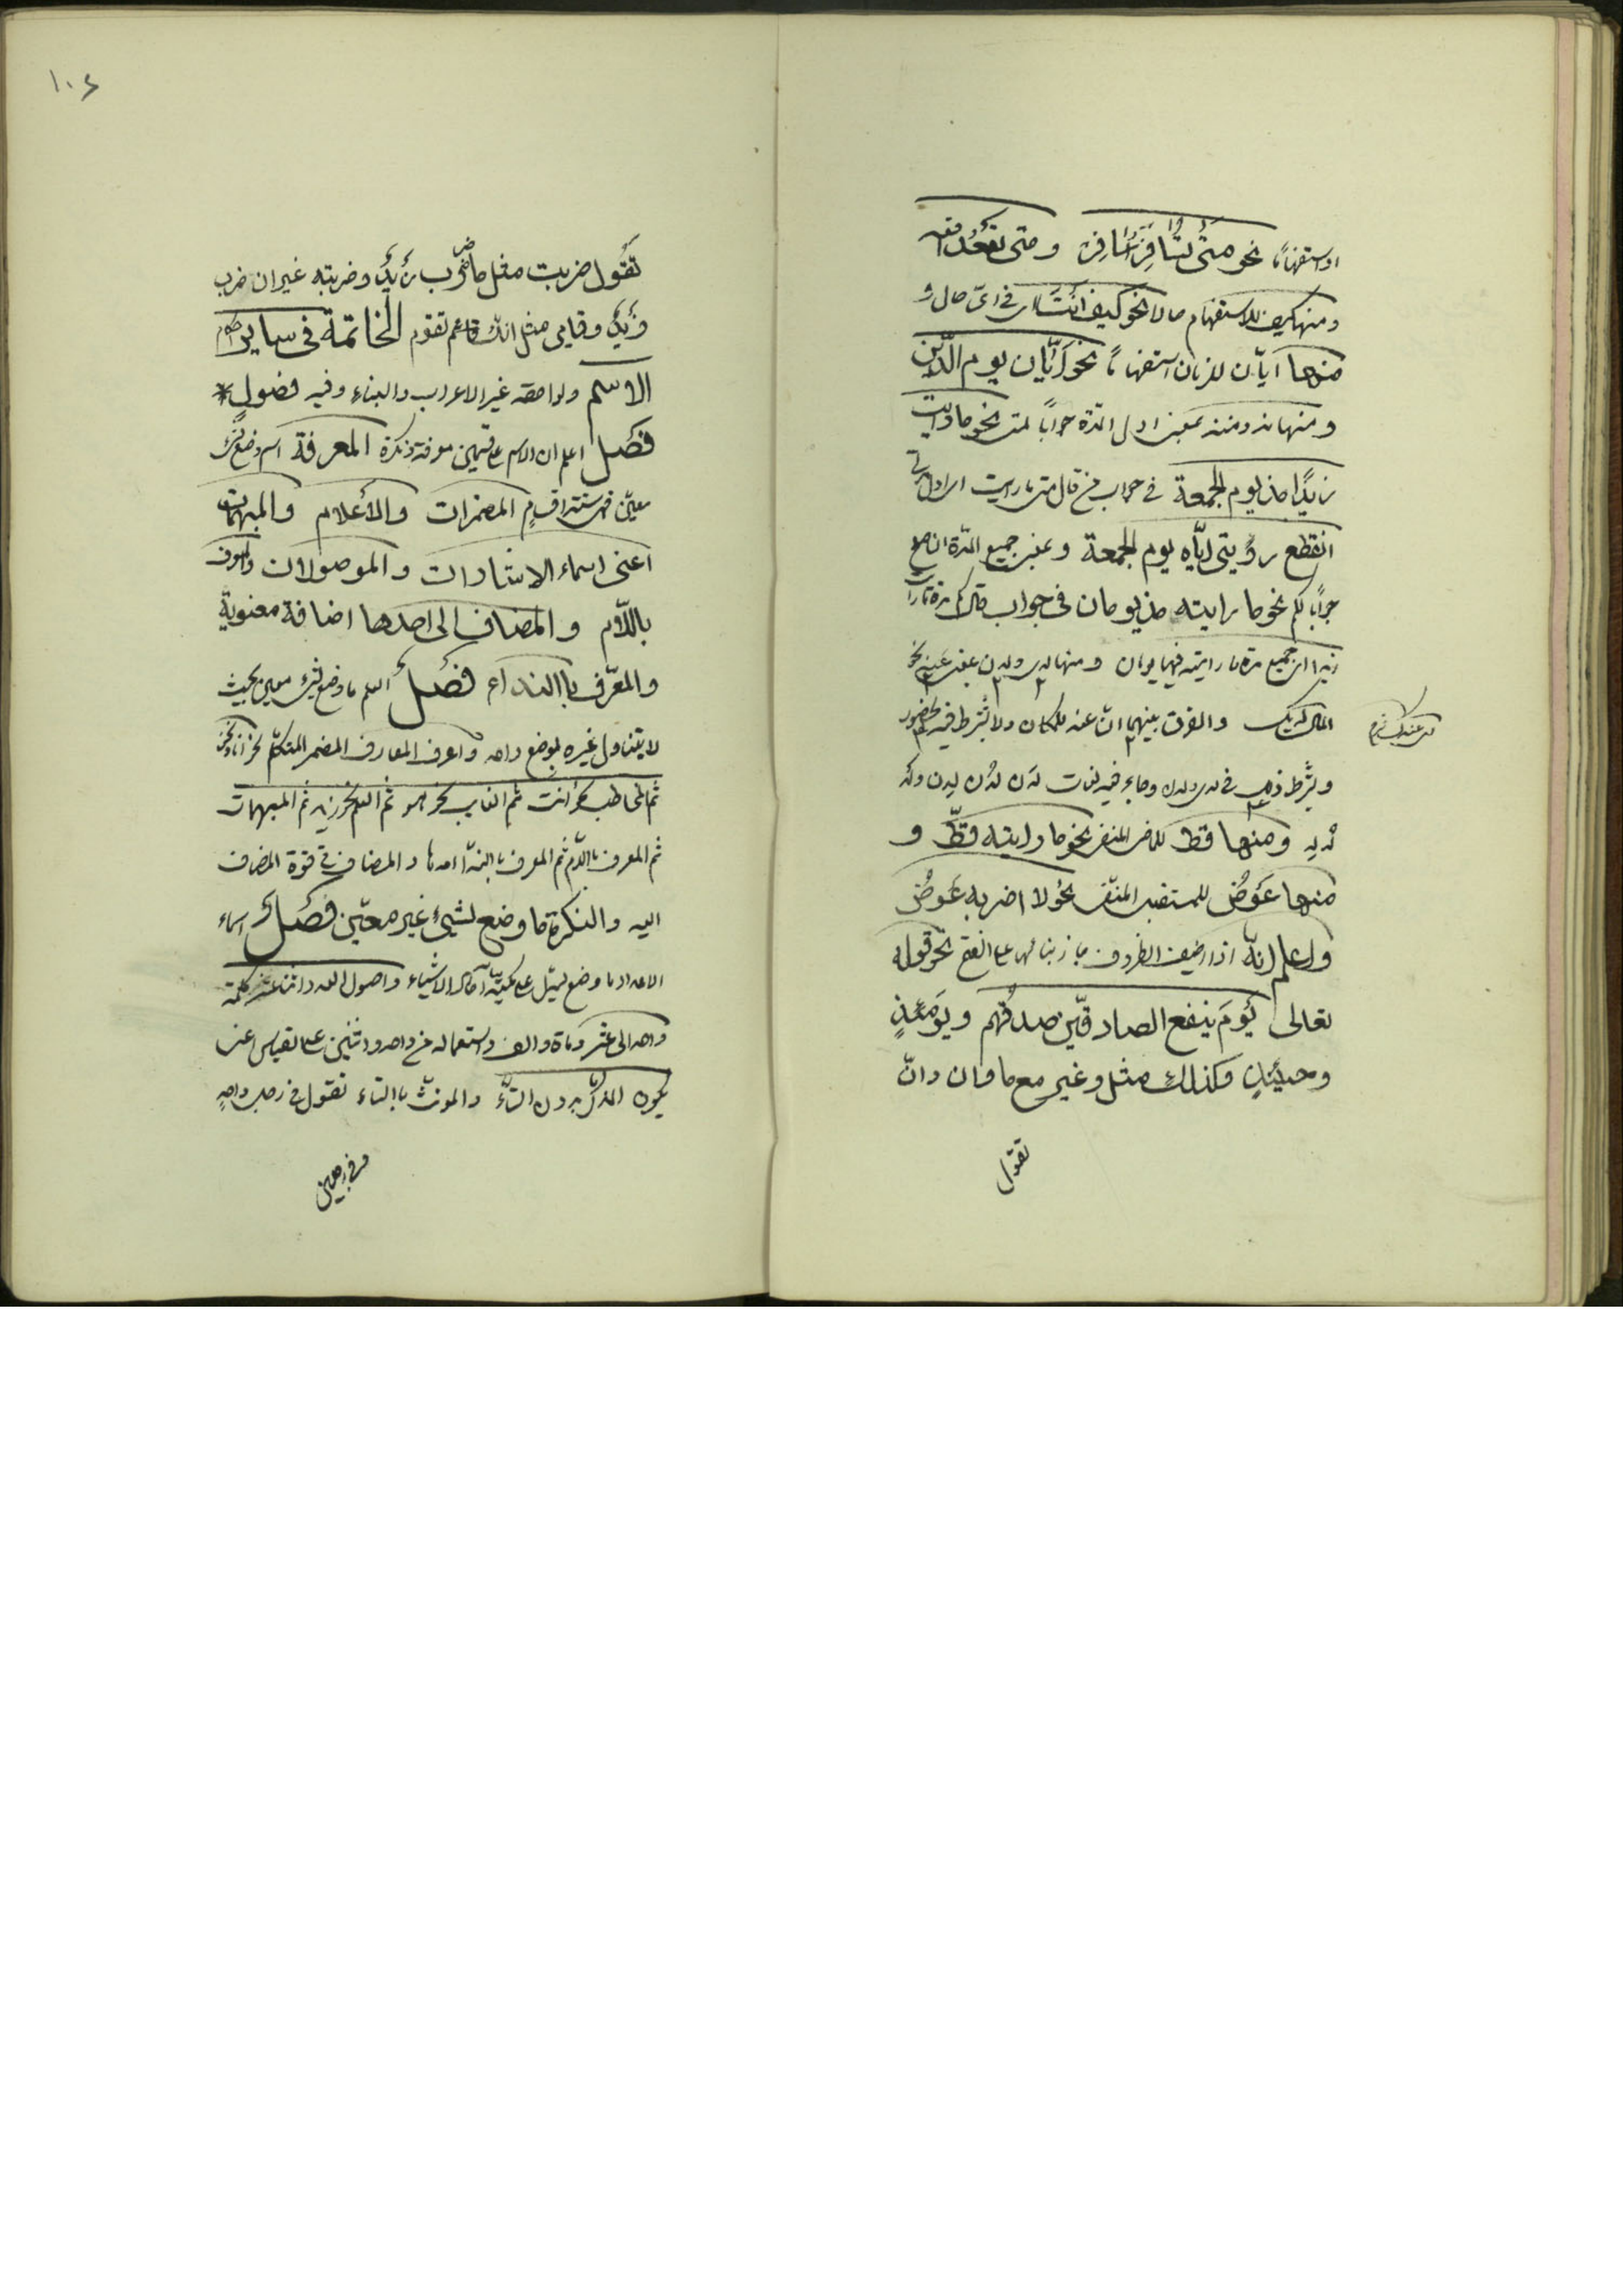 او استفهاماً نحو متى تسافر اسافر ومتى تقعد اقعد
ومنها كيف للاستفهام حالا نحو كيف انت اى فى اىّ حال و
منها ايّان للزمان استفهاماً نحو ايّان يوم الدّين
ومنها مذ ومنذ بمعنى اول المدّة جواباً لمتى نحو ما رايت
زيدًا مذ يوم الجمعة فى جواب من قال متى ما رايت اى اول مدّة
انقطع رؤيتى ايّاه يوم الجمعة وبمعنى جميع المدّة ان صلح
جواباً لكم نحو ما رايته مذ يومان فى جواب من قال كم مدّة ما رايت
زيدا اى جميع مدّة ما رايته فيها يومان ومنها لدى ولدن بمعنى عند نحو
المال لديك والفرق بينهما انّ عند للمكان ولا يشترط فيه الحضور
ويشترط ذلك فى لدى ولدن وجاء فيه لغات لدن لدن لدن ولد
لد لد ومنها قط للماضى المنفى نحو ما رايته قطّ و
منها عَوضُ للمستقبل المنفى نحو لا اضربه عَوضُ
واعلم انّه اذا اضيف الظروف جاز بنائها على الفتح نحو قوله
تعالى يومَ ينفع الصادقين صدقهم ويومَئذٍ
وحينئذٍ وكذلك مثل وغير مع ما وان وانّ
تقول
١٠٤
تقول ضربت مثل ما ضرب زيد وضربته غير ان ضرب
زيد وقيامى مثل انّك تقوم الخاتمة فى ساير احكام
الاسم ولواحقه غير الاعراب والبناء وفيه فصول
فصل اعلم ان الاسم على قسمين معرفة ونكرة المعرفة اسم وضع لشئ
معيّن وهى ستة اقسام المضمرات والأعلام والمبهمات
اعنى اسماء الاشارات والموصولات والمعرف
باللّام والمضاف الى احدها اضافة معنويّة
والمعرّف باالنداء فصل العلم ما وضع لشئ معين بحيث
لا يتناول غيره بوضع واحد واعرف المعارف المضمر المتكلم نحو انا ونحن
ثم المخاطب نحو انت ثم الغايب نحو هو ثم العلم نحو زيد ثم المبهمات
ثم المعرف باللّام ثم المعرف باالنداء والمضاف فى قوّة المضاف
اليه والنكرة ما وضع لشئ غير معيّن فصل اسماء
الاعداد ما وضع ليدل على كميّة آحاد الاشياء واصول العدد اثنتا عشرة كلمة
واحد الى عشر ومائة والف واستعماله من واحد واثنين على القياس اعنى
يكون المذكّر بدون التّاء والمونّث باالتاء تقول فى رجل واحدٍ
وفى رجلين